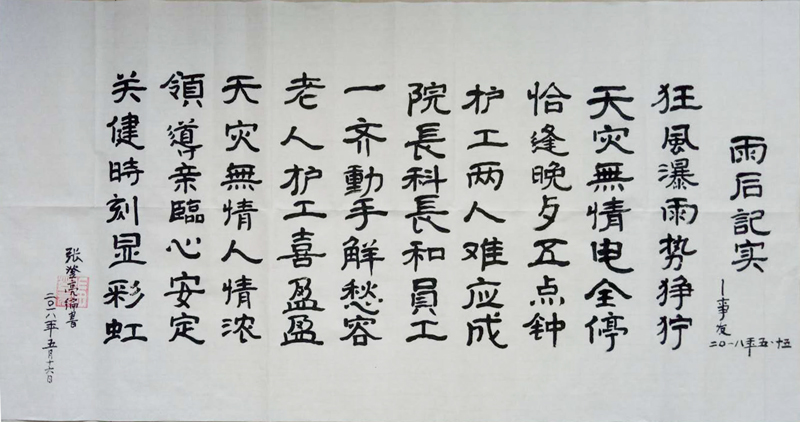 雨后記实
一事友
二〇一八年五·十五
狂風瀑雨势狰狞
天灾無情电全停
恰逢晚歺五点钟
护工两人难应成
院長科長和員工
一齐動手觧愁容
老人护工喜盈盈
天灾無情人情浓
領導亲臨心安定
关健時刻显彩虹
张澄亮
二〇一八年五月十六日